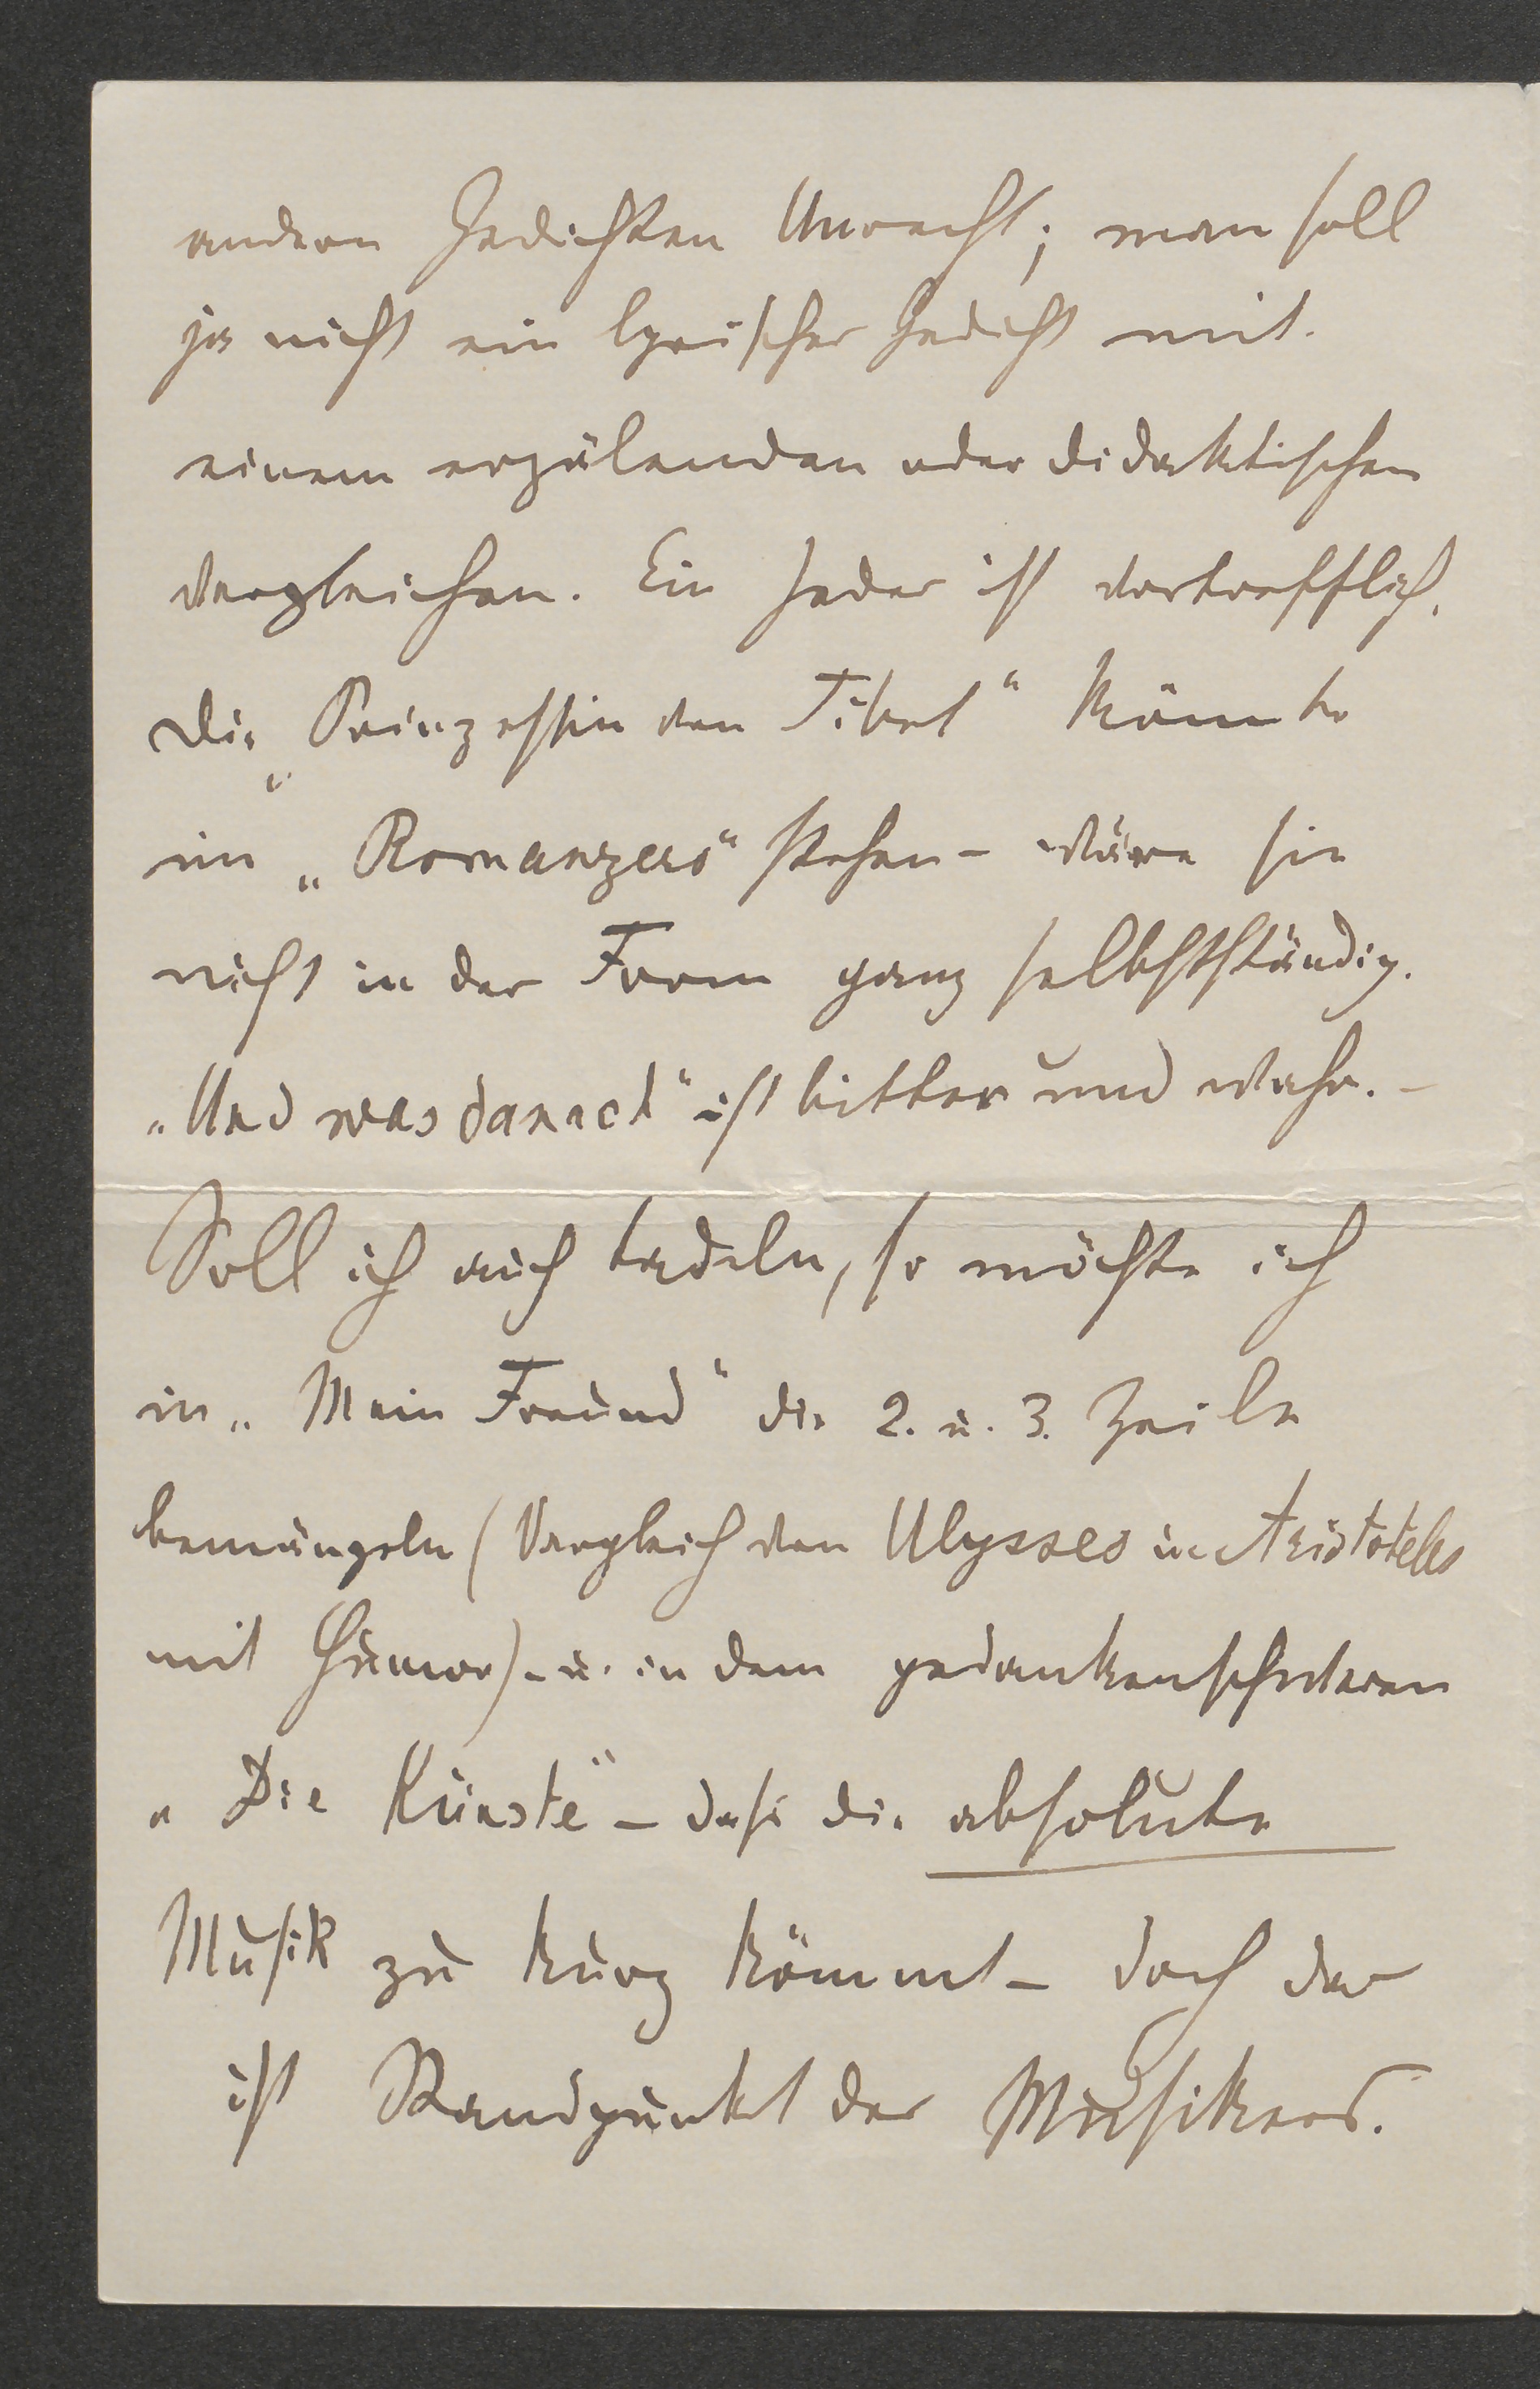 andern Gedichten Unrecht; man soll
ja nicht ein lyrisches Gedicht mit
einem erzälenden oder didaktischen
vergleichen. Ein Jedes ist vortrefflich.
Die „Prinzessin von Tibet“ könnte
im „Romanzero“ stehen – wäre sie
nicht in der Form ganz selbstständig.
„Und was danach“ ist bitter und wahr. –
Soll ich auch tadeln, so möchte ich
in „Mein Freund“ die 2. u. 3. Zeile
bemängeln (Vergleich von Ulysses u Aristoteles
mit Humor) – u. in dem gedankenschweren
„Die Künste“ – daß die absolute
Musik zu kurz kömmt – doch das
ist Standpunkt des Musikers.